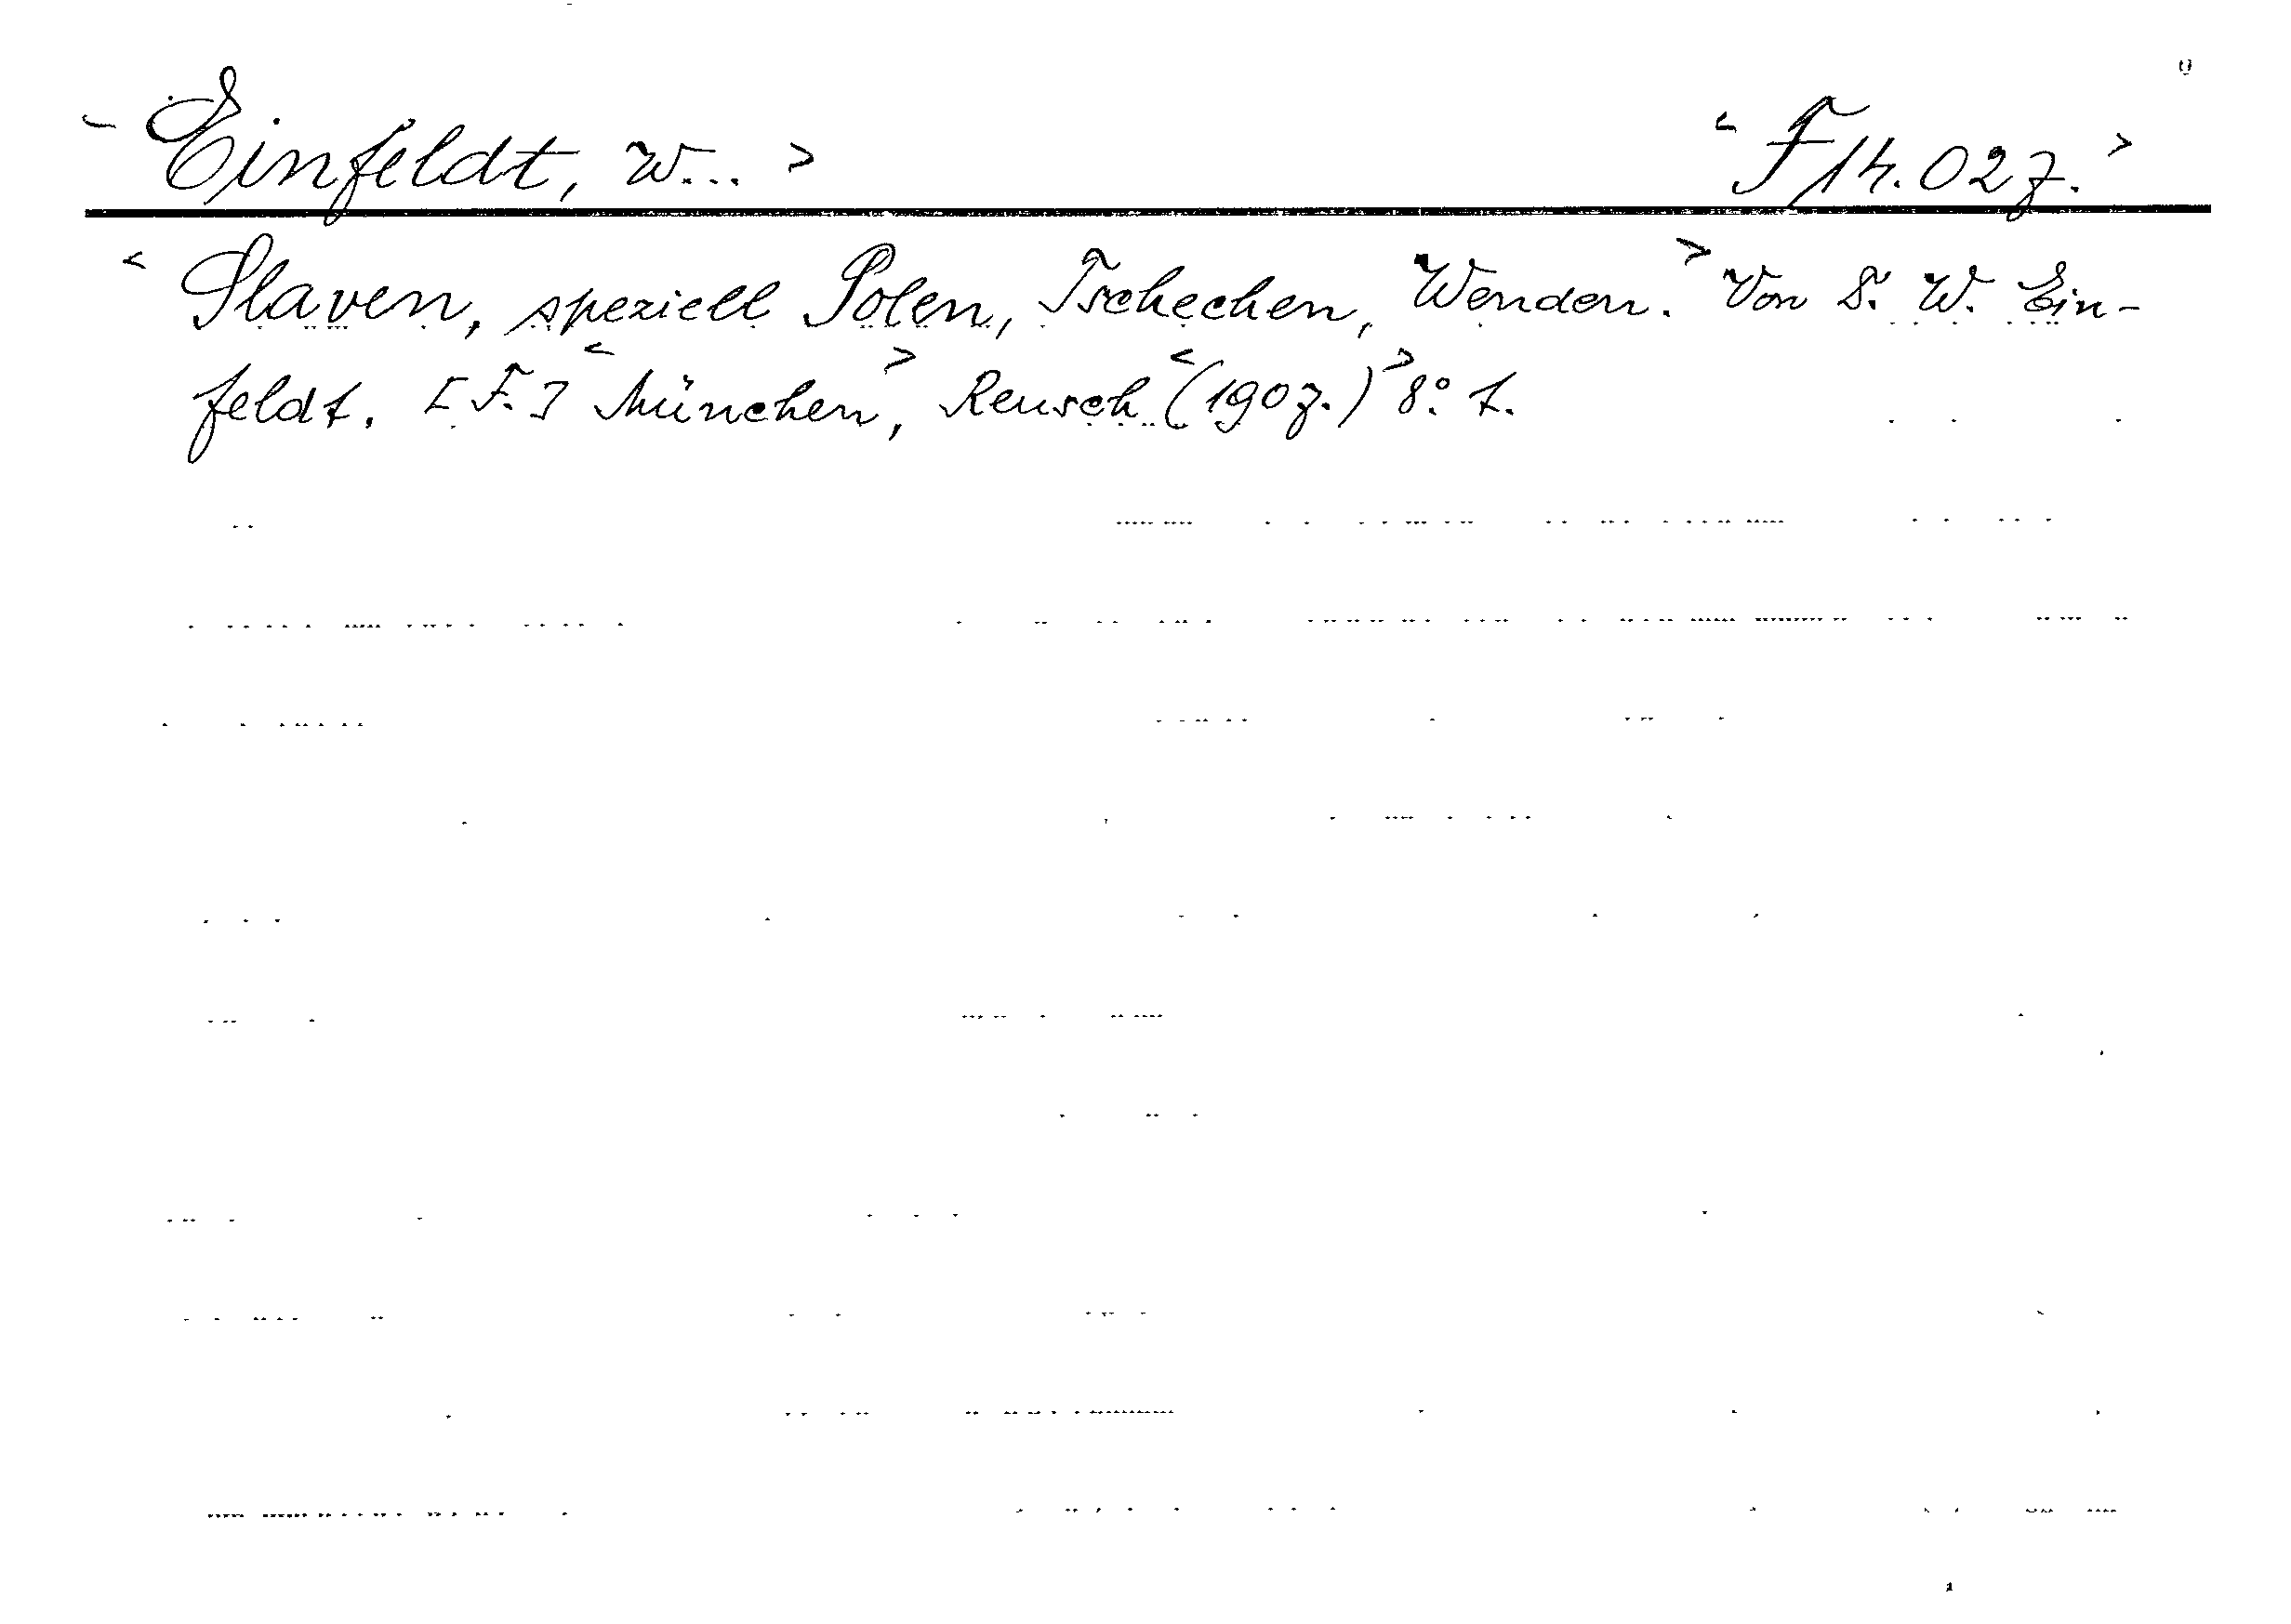 < Einfeldt, W... > < F 14.027. >
< Slaven, speziell Polen, Tschechen, Wenden. > Von D. W. Ein-
feldt. [F.] < München >, Reusch < (1907.) > 8° 1.